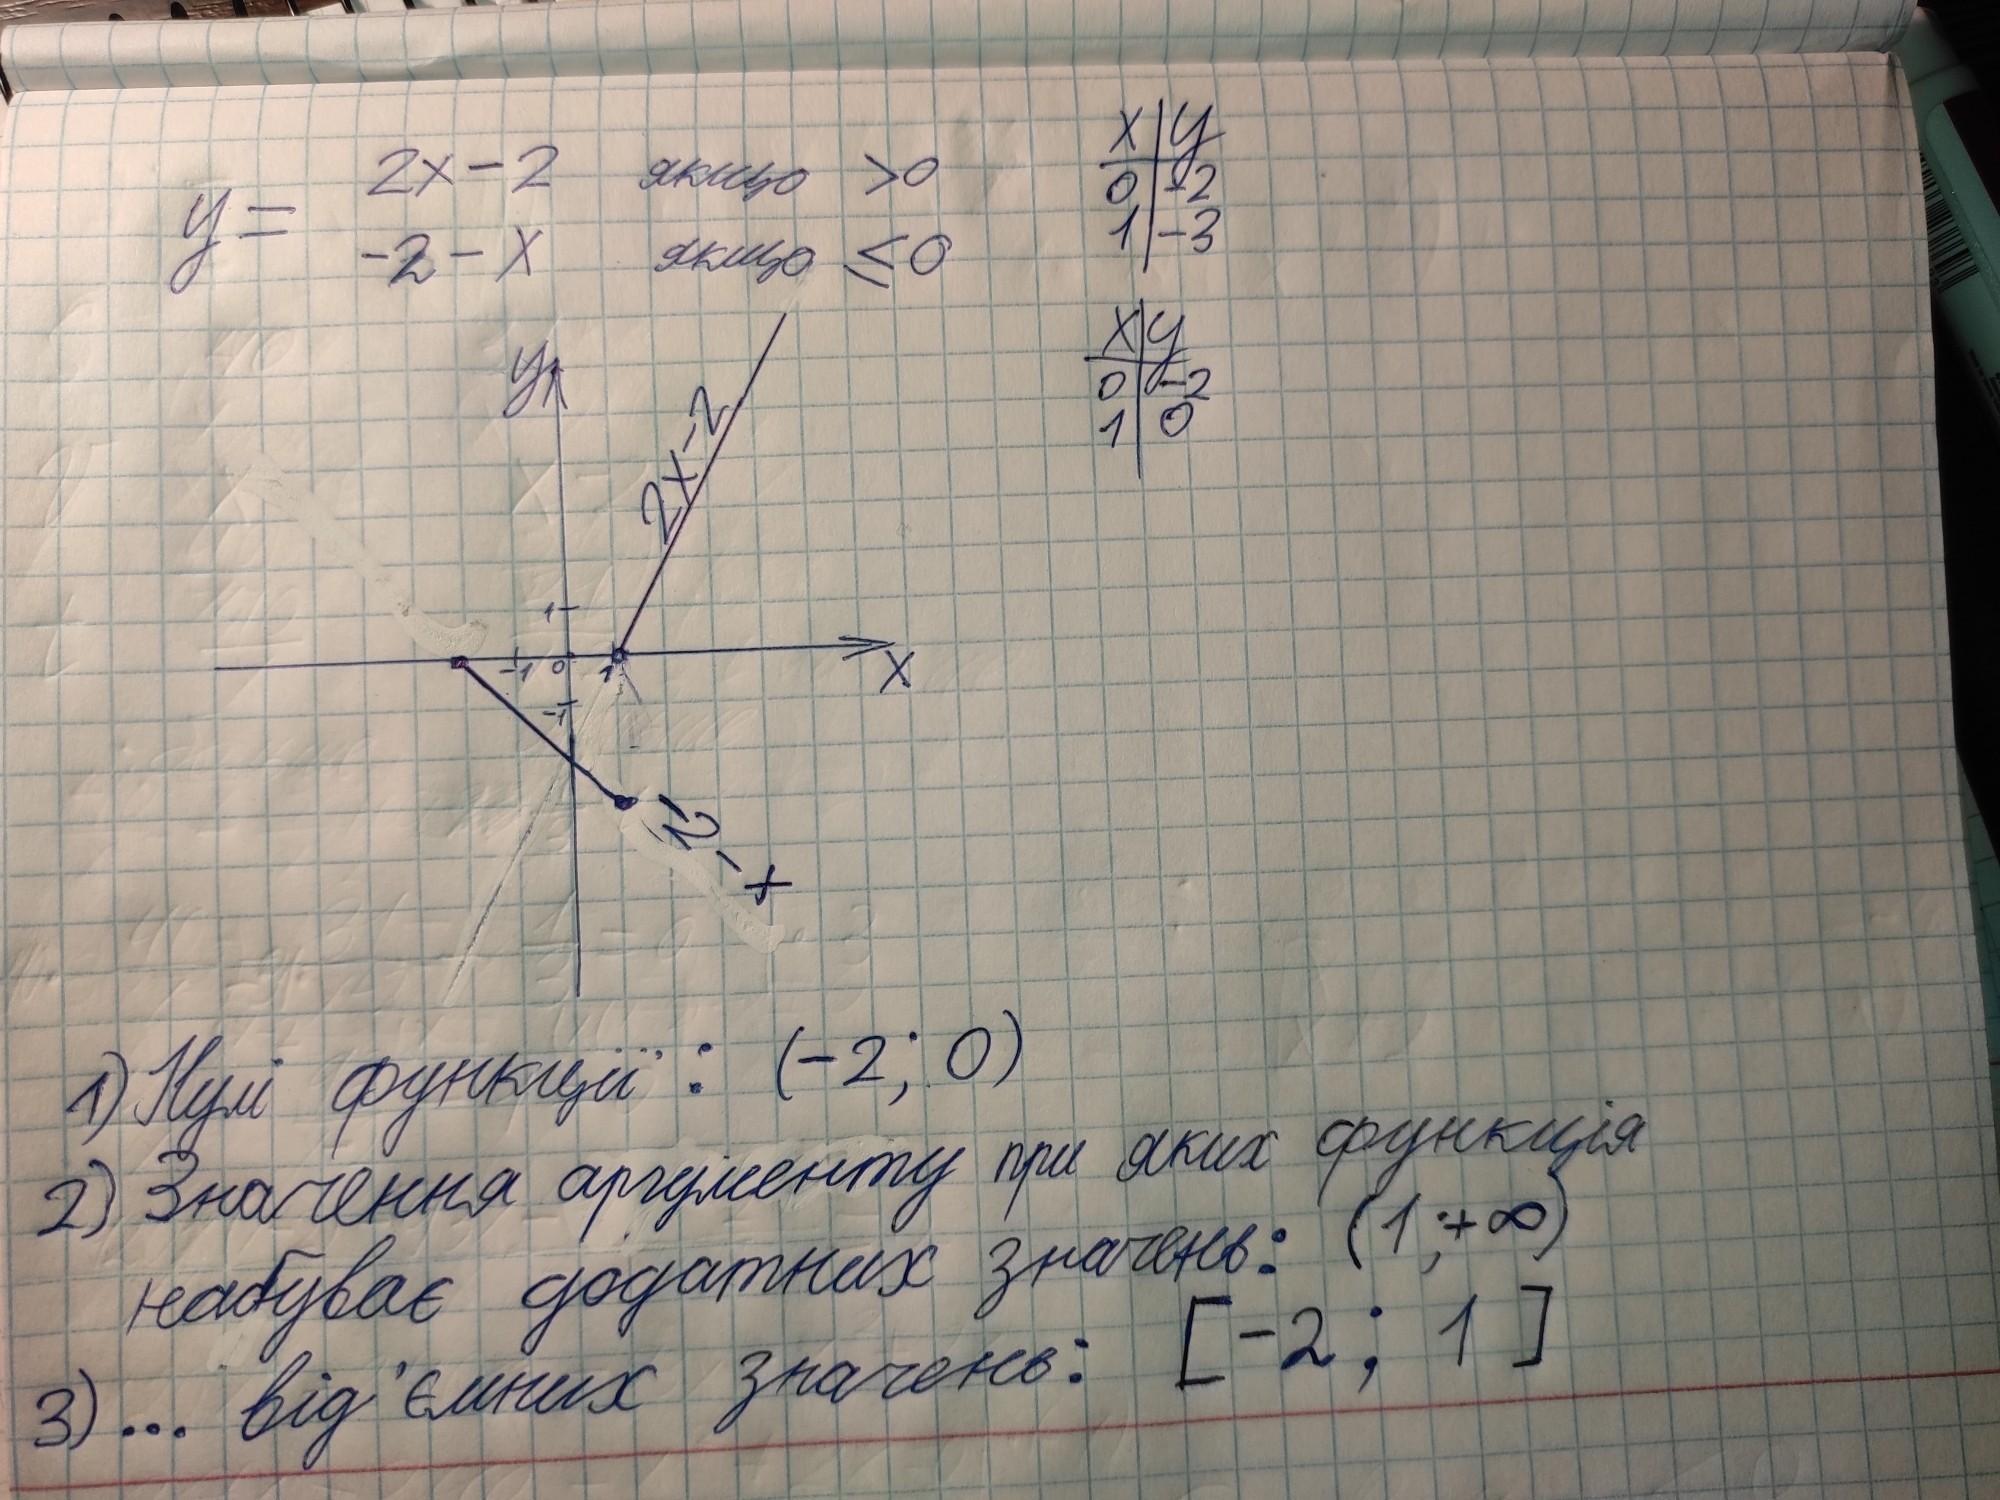 y = 2x - 2 якщо > 0
-2 - x якщо ≤ 0
x | y
0 | -2
1 | -3
x | y
0 | -2
1 | 0
y
2x-2
1
-1 0 1
x
-1
-2 - x
1) Нулі функції: (-2; 0)
2) Значення аргументу при яких функція
набуває додатних значень: (1; +∞)
3) ... від'ємних значень: [-2; 1]